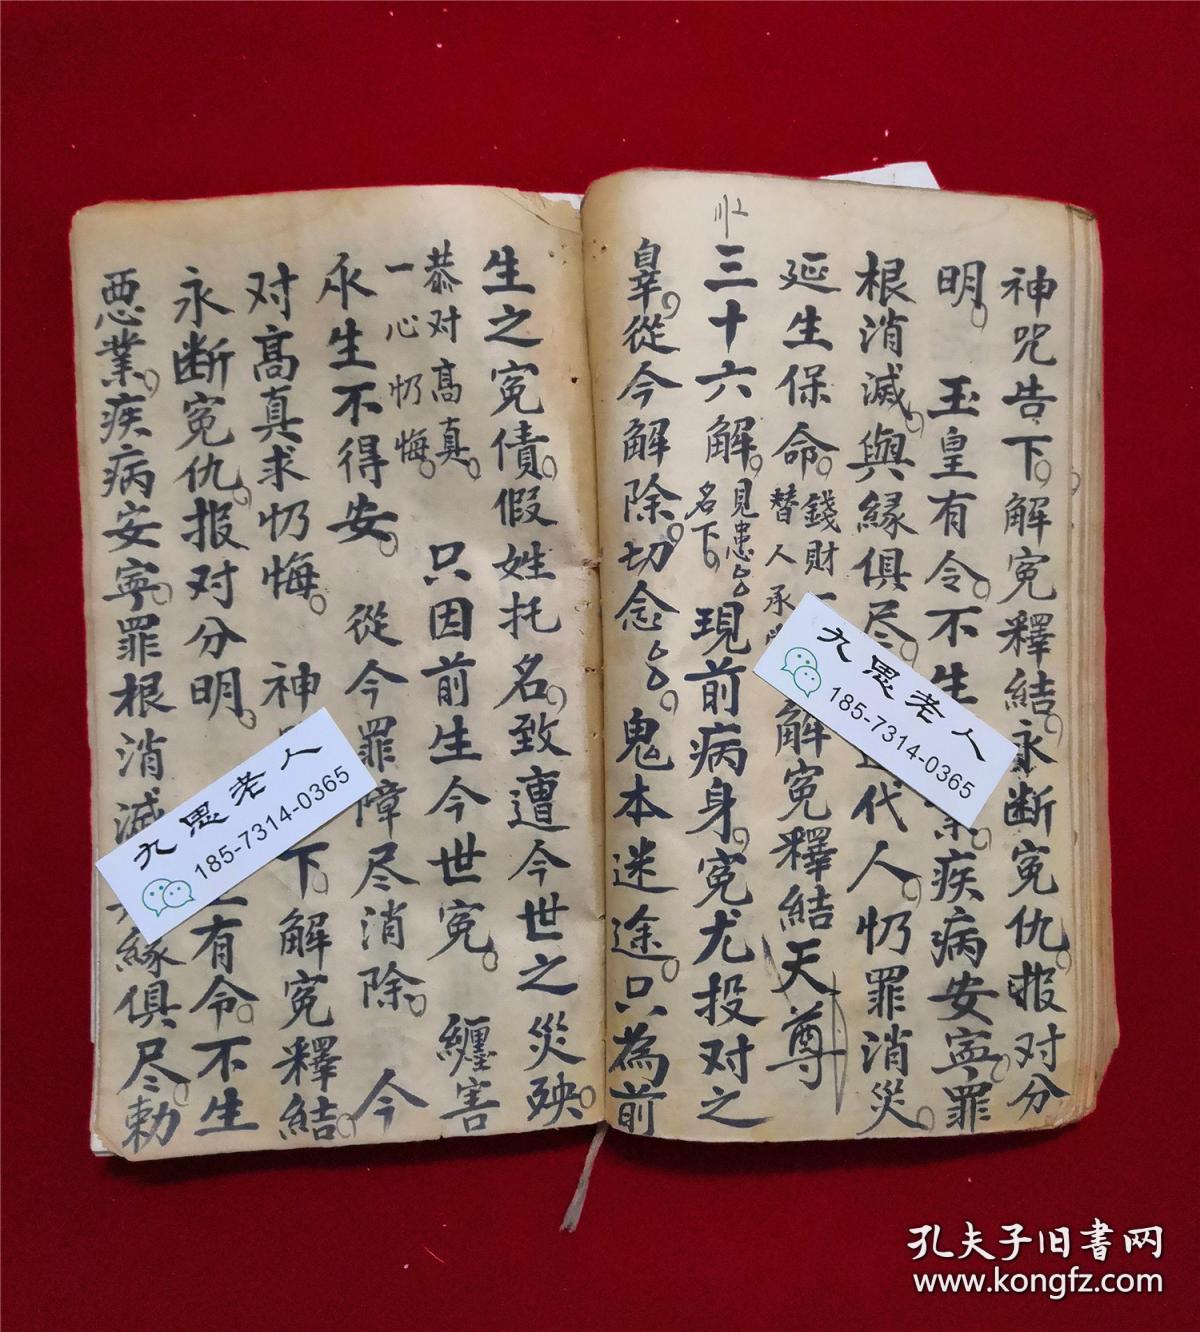 神咒告下。解冤釋結。永断冤仇。报对分
明。 玉皇有令。不生 業。疾病安寧。罪
根消滅。與緣俱尽。
延生保命。
錢財一
替人承
代人。忉罪消災。
解冤釋結天尊
三十六解。
見患
名下。
現前病身。冤尤投对之
辜。從今解除。切念。鬼本迷途。只為前
生之冤债。假姓托名。致遭今世之災殃。
恭对高真。
一心忉悔。
只因前生今世冤。 纏害
永生不得安。 從今罪障尽消除。 今
对髙真求忉悔。 神 下。解冤釋結。
永断冤仇。报对分明。 有令。不生
悪業。疾病安寧。罪根消滅 緣俱尽。勅
九思老人
185-7314-0365
九思老人
185-7314-0365
孔夫子旧書网
www.kongfz.com